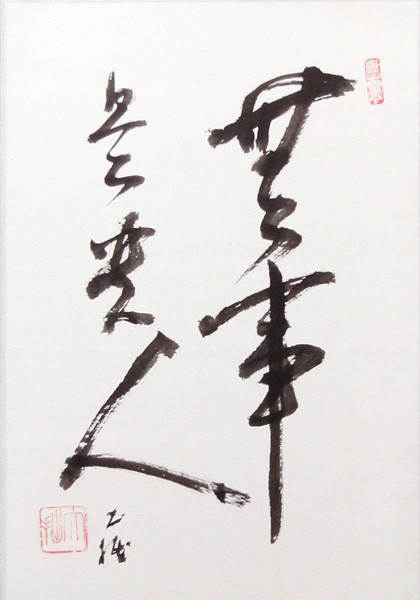 無事
是貴人